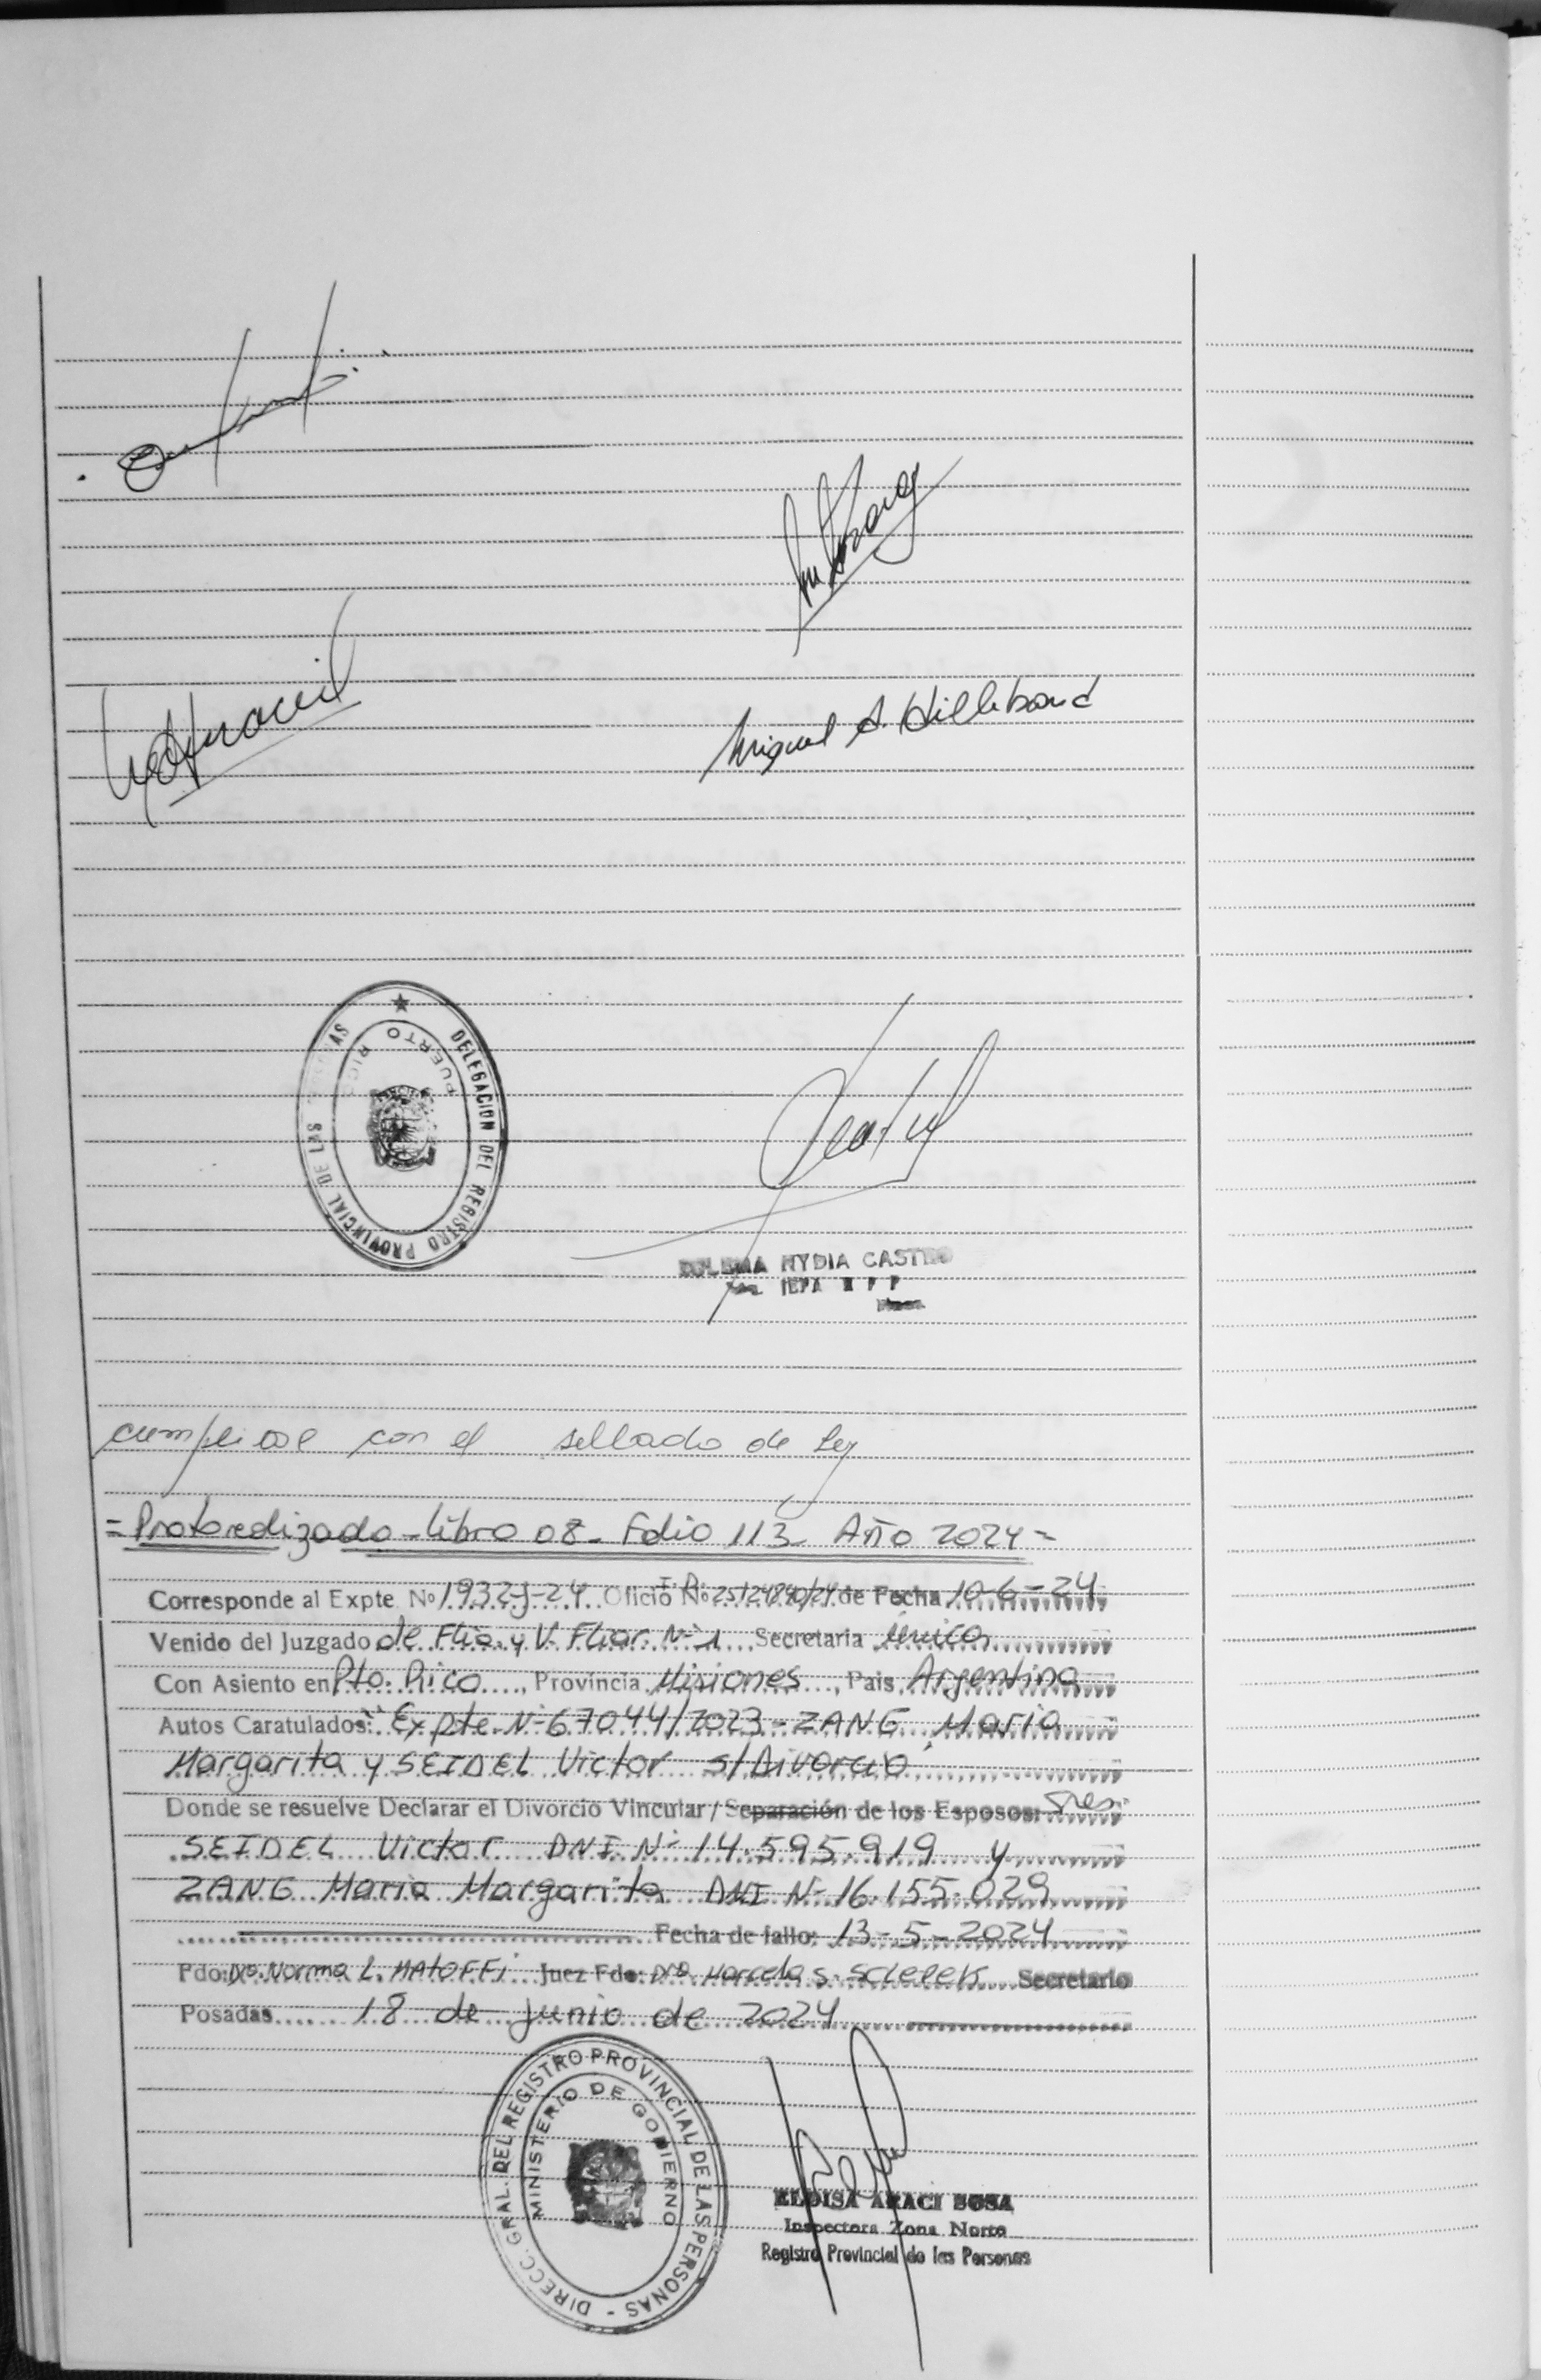 Miguel A. Hillebrand
★ DELEGACION DEL REGISTRO PROVINCIAL DE LAS
PUERTO RICO
NYDIA CASTRO
con el sellado de Ley
= Protocolizado - Libro 08 - Folio 113 - Año 2024 =
Corresponde al Expte Nº 1932-J-24 Oficio Nº 25124840/24 de Fecha 10-6-24
Venido del Juzgado de Flia. y V. Fliar. Nº 1 Secretaria única
Con Asiento en Pto. Rico, Provincia Misiones, Pais Argentina
Autos Caratulados: "Expte. Nº 67044/2023 - ZANG Maria
Margarita y SEIDEL Victor s/ Divorcio"
Donde se resuelve Declarar el Divorcio Vincular / Separación de los Esposos: Sres.
SEIDEL Victor DNI Nº 14.595.919 y
ZANG Maria Margarita DNI Nº 16.155.029
Fecha de fallo: 13-5-2024
Fdo: Dra. Norma L. MATOFFI Juez Fdo: Dra. Marcela S. Secretario
Posadas 18 de junio de 2024
DIRECC. GRAL. DEL REGISTRO PROVINCIAL DE LAS PERSONAS -
MINISTERIO DE GOBIERNO
ELOISA ARACI SOSA
Inspectora Zona Norte
Registro Provincial de las Personas